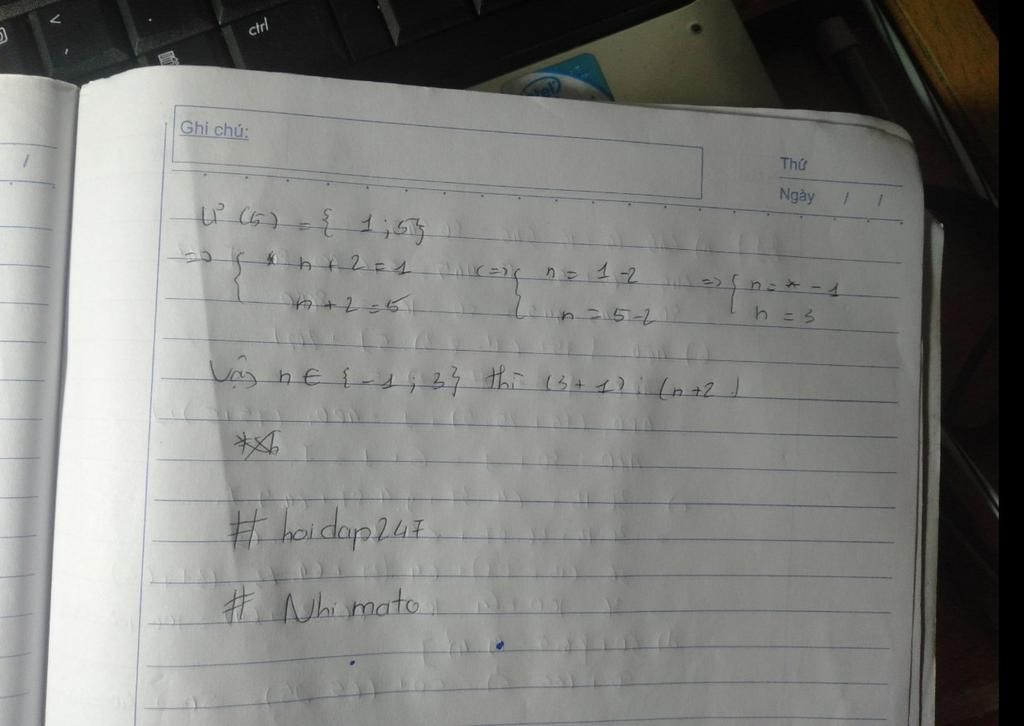 ctrl
intel
Ghi chú:
Thứ
Ngày / /
Ư (5) = { 1 ; 5}
=> { n + 2 = 1 <=> { n = 1-2 => { n = -1
n + 2 = 5 n = 5-2 n = 3
Vậy n ∈ { -1 ; 3} thì (3 + 1) ⋮ (n+2)
# hoidap247
# Nhimato